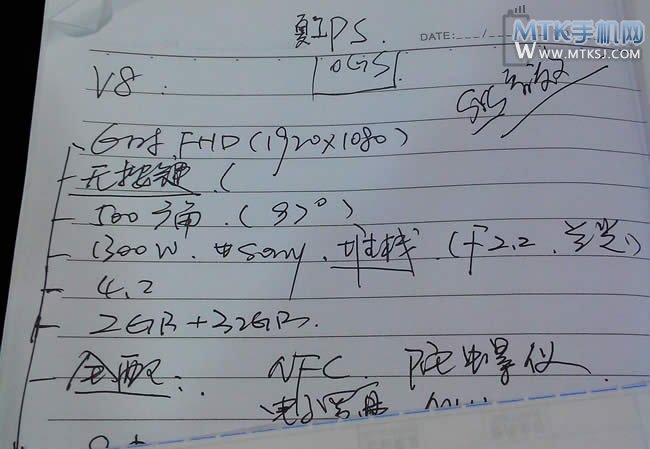 夏IPS.
DATE:
MTK手机网
WWW.MTKSJ.COM
OGS
V8:
FHD (1920×1080)
无按键. (
500 前. (87°)
1300W. sony. 堆栈. (F2.2.
4.2
2GB+32GB.
全配: NFC. 陀螺仪